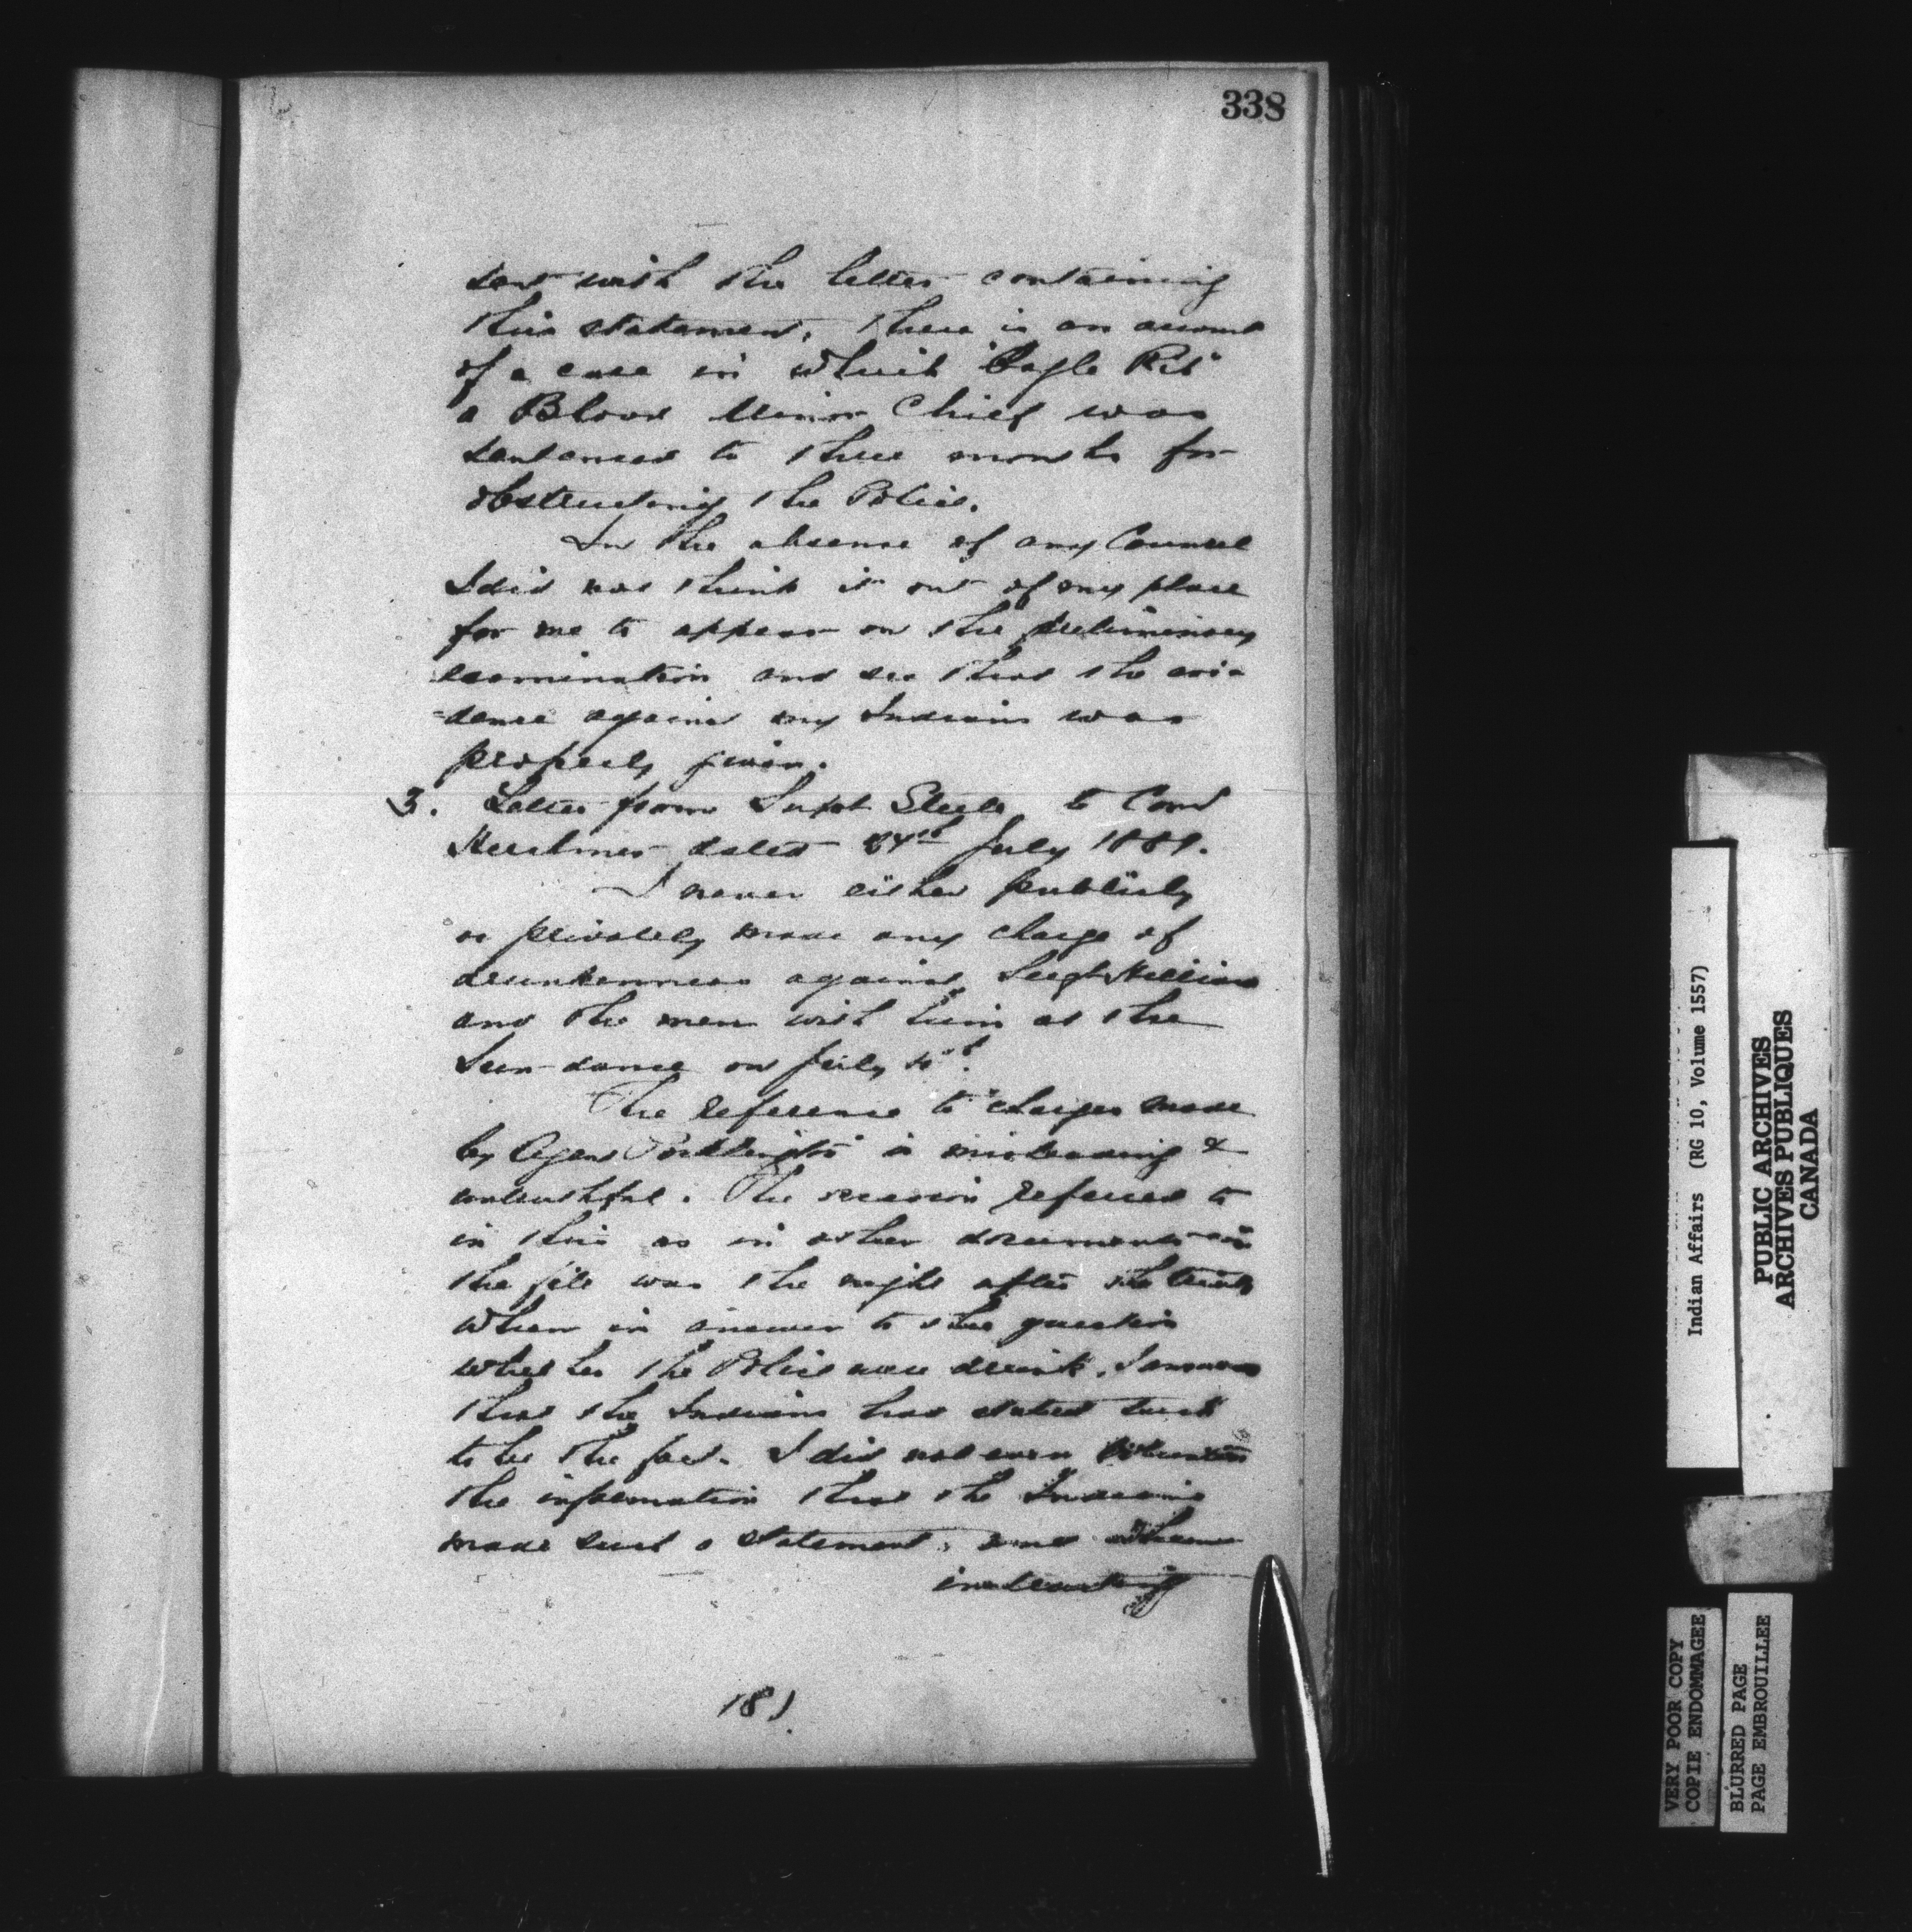 338
sent with the letter containing
this statement, there is an account
of a case in which "Eagle Rib"
a Blood Minor Chief was
sentenced to three months for
obstructing the Police.
In the absence of any Counsel
I did not think it out of my place
for me to appear on the preliminary
examination and see that the evi-
-dence against my Indians was
properly given.
3. Letter from Supt Steele to Com
Herchmer dated July 1889.
I never either publicly
or privately made any charge of
drunkenness against Sergt Hilliard
and the men with him at the
Sun-dance on July 4th.
The reference to "charges made
by Agent Pocklington" is misleading &
untruthful. The occasion referred to
in this as in other documents in
the file was the night after the trial
when in answer to the question
whether the Police were drunk, I answered
that the Indians had stated such
to be the fact. I did not even volunteer
the information that the Indians
made such a statement, and
181
Indian Affairs (RG 10, Volume 1557)
PUBLIC ARCHIVES
ARCHIVES PUBLIQUES
CANADA
VERY POOR COPY
COPIE ENDOMMAGEE
BLURRED PAGE
PAGE EMBROUILLEE